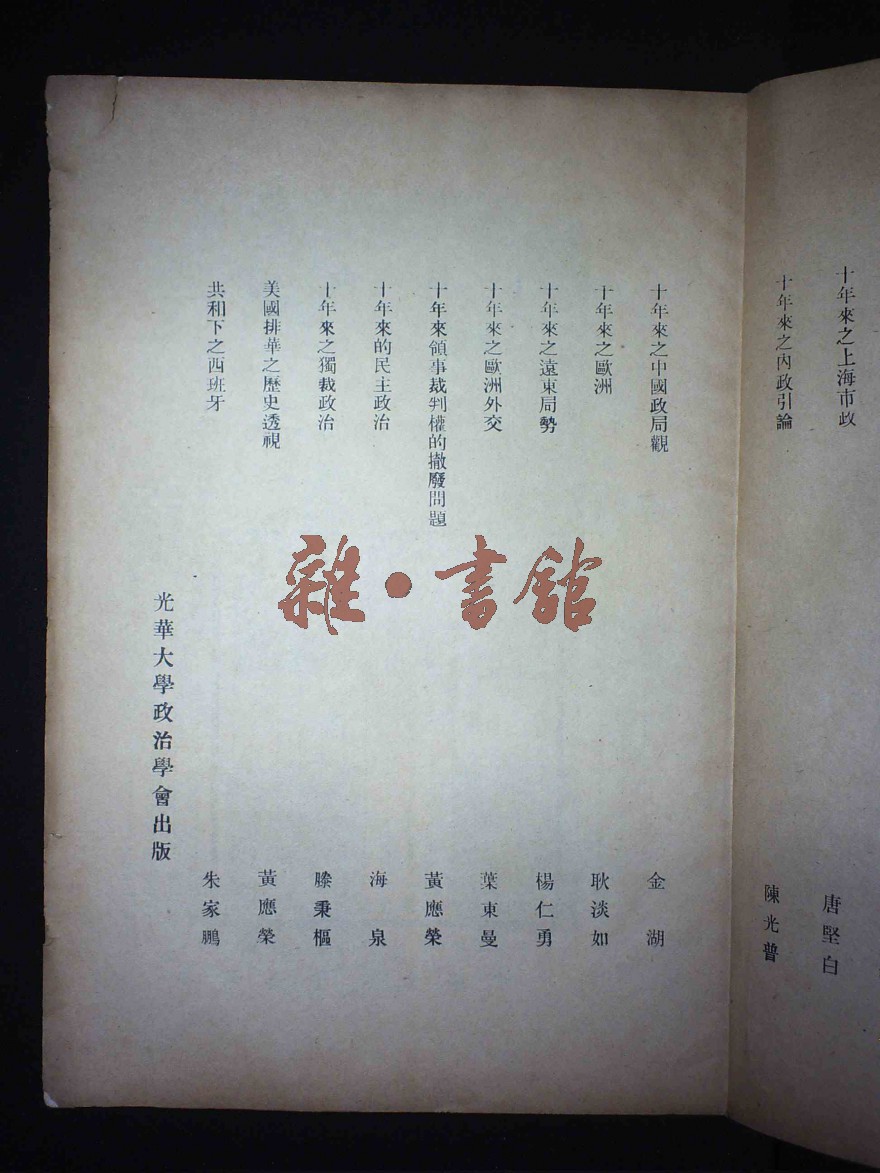 十年來之上海市政
唐堅白
十年來之內政引論
陳光普
十年來之中國政局觀
金湖
十年來之歐洲
耿淡如
十年來之遠東局勢
楊仁勇
十年來之歐洲外交
葉東曼
十年來領事裁判權的撤廢問題
黃應榮
十年來的民主政治
海泉
十年來之獨裁政治
滕秉樞
美國排華之歷史透視
黃應榮
共和下之西班牙
朱家鵬
光華大學政治學會出版
雜·書館